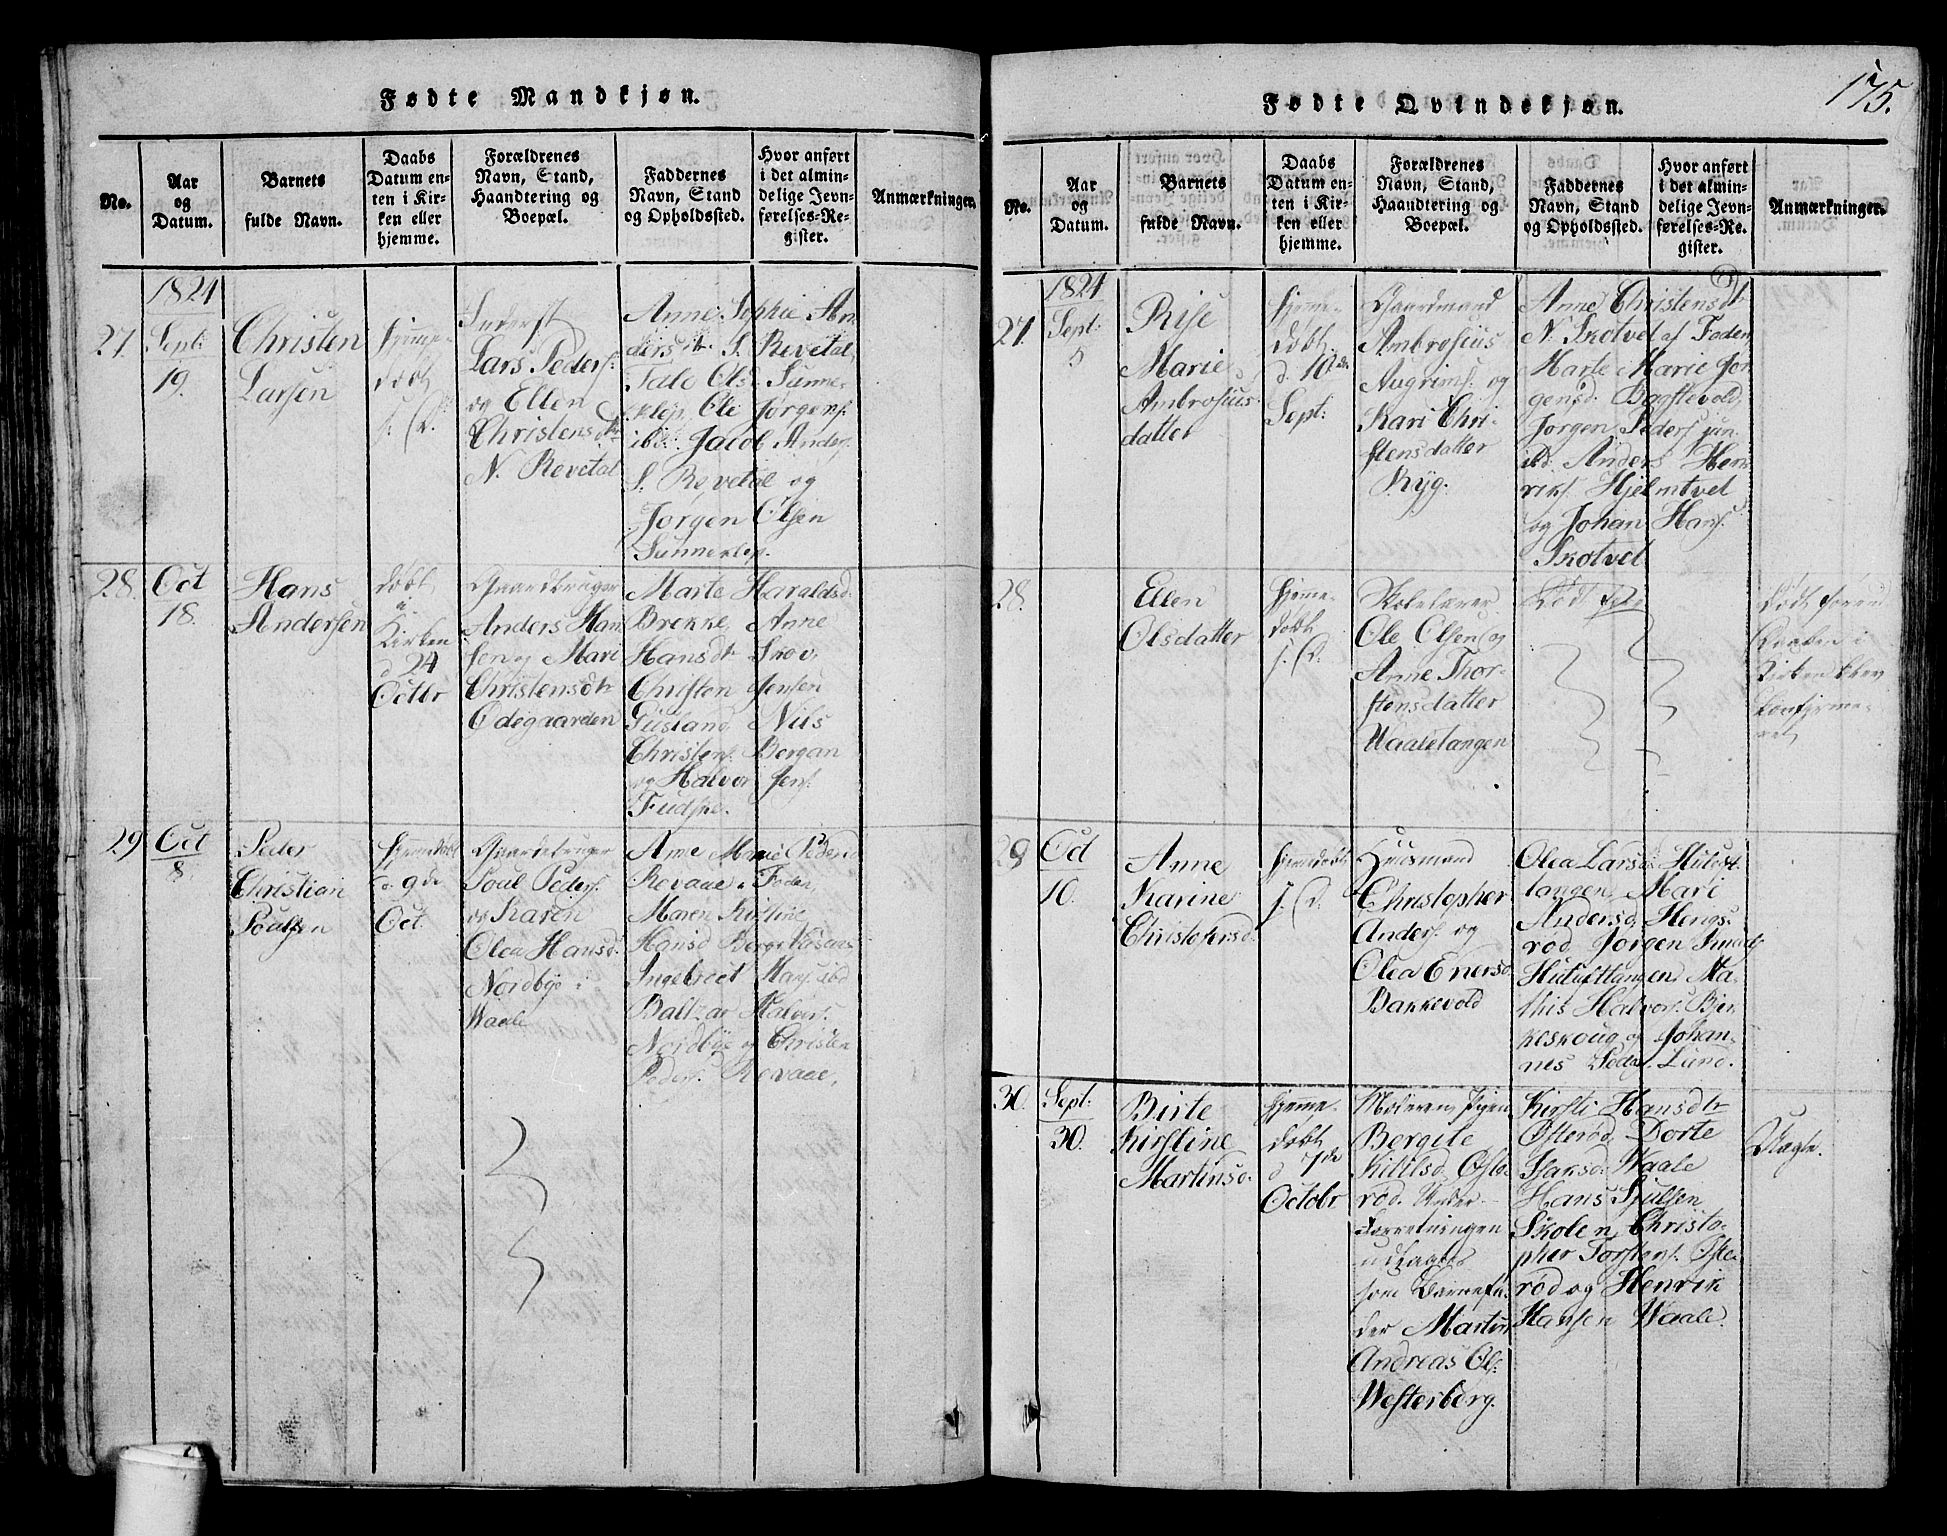 Fødte Mandkjøn.
No.
Aar
og
Datum.
Barnets
fulde Navn.
Daabs
Datum en-
ten i Kir-
ken eller
hjemme.
Forældrenes
Navn, Stand,
Haandtering og
Boepæl.
Faddernes
Navn, Stand
og Opholdssted.
Hvor anført
i det almin-
delige Jevn-
førelses-Re-
gister.
Anmærkninger.
27.
1824
Sept:
19.
Christen
Larsen
Hjemme-
døbt
Inderst
Lars Peders:
og Ellen
Christensdtr
N. Revetal
Anne Sophie An
ders dtr S. Revetal,
Tale Ols. Sunne-
klep, Ole Jørgens.
ibd: Jacob Anders.
S. Revetal og
Jørgen Olsen
Sunneklep.
28.
Oct
18.
Hans
Andersen
døbt
i
Kirken
d 24
Octbr
Gaardbruger
Anders Han
sen og Mari
Christensdtr
Odegaarden
Marte Haraldsd.
Brekke, Anne
Hansdtr Skov,
Christen Jensen
Gusland, Nils
Christens: Bergan
og Halvor Jens.
Fudske.
29
Oct
8.
Peder
Christian
Poulsen
Hjemdøbt
9de
Oct.
Gaardbruger
Poul Peders.
og Karen
Olea Hansd.
Nordbye i
Waale
Anne Marie Pedersd
Revaae, Faden,
Maren Kirstine
Hansd Berge
Ingebret Hans. ibd
Baltzar Halvors.
Nordbye og Christen
Peders. Revaae,
175.
Fødte Qvindekjøn.
No.
Aar
og
Datum.
Barnets
fulde Navn.
Daabs
Datum en-
ten i Kir-
ken eller
hjemme.
Forældrenes
Navn, Stand,
Haandtering og
Boepæl.
Faddernes
Navn, Stand
og Opholdssted.
Hvor anført
i det almin-
delige Jevn-
førelses-Re-
gister.
Anmærkninger.
27.
1824
Sept:
5
Rise
Marie
Ambrosius
datter
Hjemme-
døbt
d. 10de
Sept:
Gaardmand
Ambrosius
Augrims. og
Kari Chri-
stensdatter
Ryg.
Anne Christensdtr
N. Skotvet af Faden
Marte Marie Jør
gensd. Bagstevold
Jørgen Peders jun
ibd. Anders Hen
riks. Hjelmtvet
og Johan Hans.
Skotvet
28.
Ellen
Olsdatter
Hjemme-
døbt
Skolelærer
Ole Olsen og
Anne Thor-
stensdatter
Waaletangen
Død
Død foren
Daaben i
Kirken blev
Confirme-
ret
29
Oct
10.
Anne
Karine
Christofersd.
Hjemdøbt
Huusmand
Christopher
Anders. og
Olea Enersd.
Bakkevold
Olea Larsd. Hiulst
tangen, Mari
Andersd, Hengs-
rød, Jørgen Knuds
Hiulsttangen, Ma-
this Halvors. Bir-
keskoug og Johan-
nes Peders. Lund.
30.
Sept:
30.
Birte
Kirstine
Martinsd.
Hjemme-
døbt
d 7de
Octobr
Bergite
Kittilsd. Øste-
rød. Under
Forretningen
udlagdes
som Barnefa-
der Martin
Andreas Ols:
Westerberg.
Kirsti Hansdtr
Østerød, Dorte
Isaksd. Waale
Hans Julsen
Skolen, Christo-
pher Torstens. Øste
rød og Henrik
Hansen Waale.
Uægte.